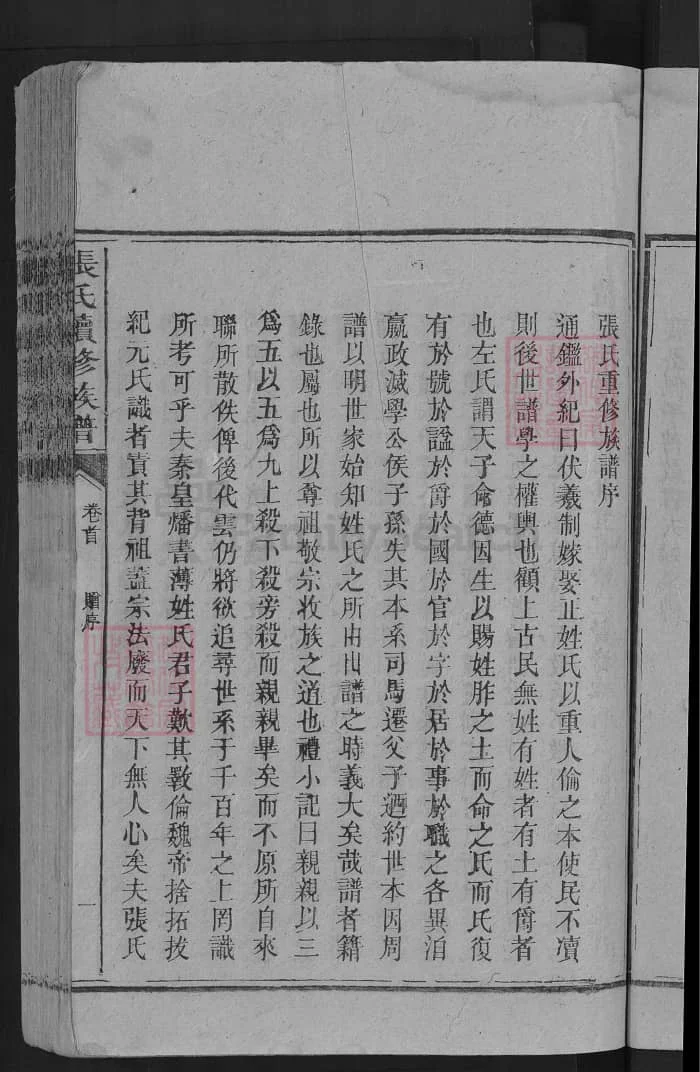 張氏重修族譜序
通鑑外紀曰伏羲制嫁娶正姓氏以重人倫之本使民不凟
則後世譜學之權輿也顧上古民無姓有姓者有土有爵者
也左氏謂天子命德因生以賜姓胙之土而命之氏而氏復
有於號於諡於爵於國於官於字於居於事於職之各異洎
嬴政滅學公侯子孫失其本系司馬遷父子迺約世本因周
譜以明世家始知姓氏之所由出譜之時義大矣哉譜者籍
錄也屬也所以尊祖敬宗收族之道也禮小記曰親親以三
爲五以五爲九上殺下殺旁殺而親親畢矣而不原所自來
聯所散佚俾後代雲仍將欲追尋世系于千百年之上罔識
所考可乎夫秦皇燔書薄姓氏君子歎其斁倫魏帝捨拓拔
紀元氏識者責其背祖蓋宗法廢而天下無人心矣夫張氏
張氏續修族譜
卷首
贈序
一
FamilySearch